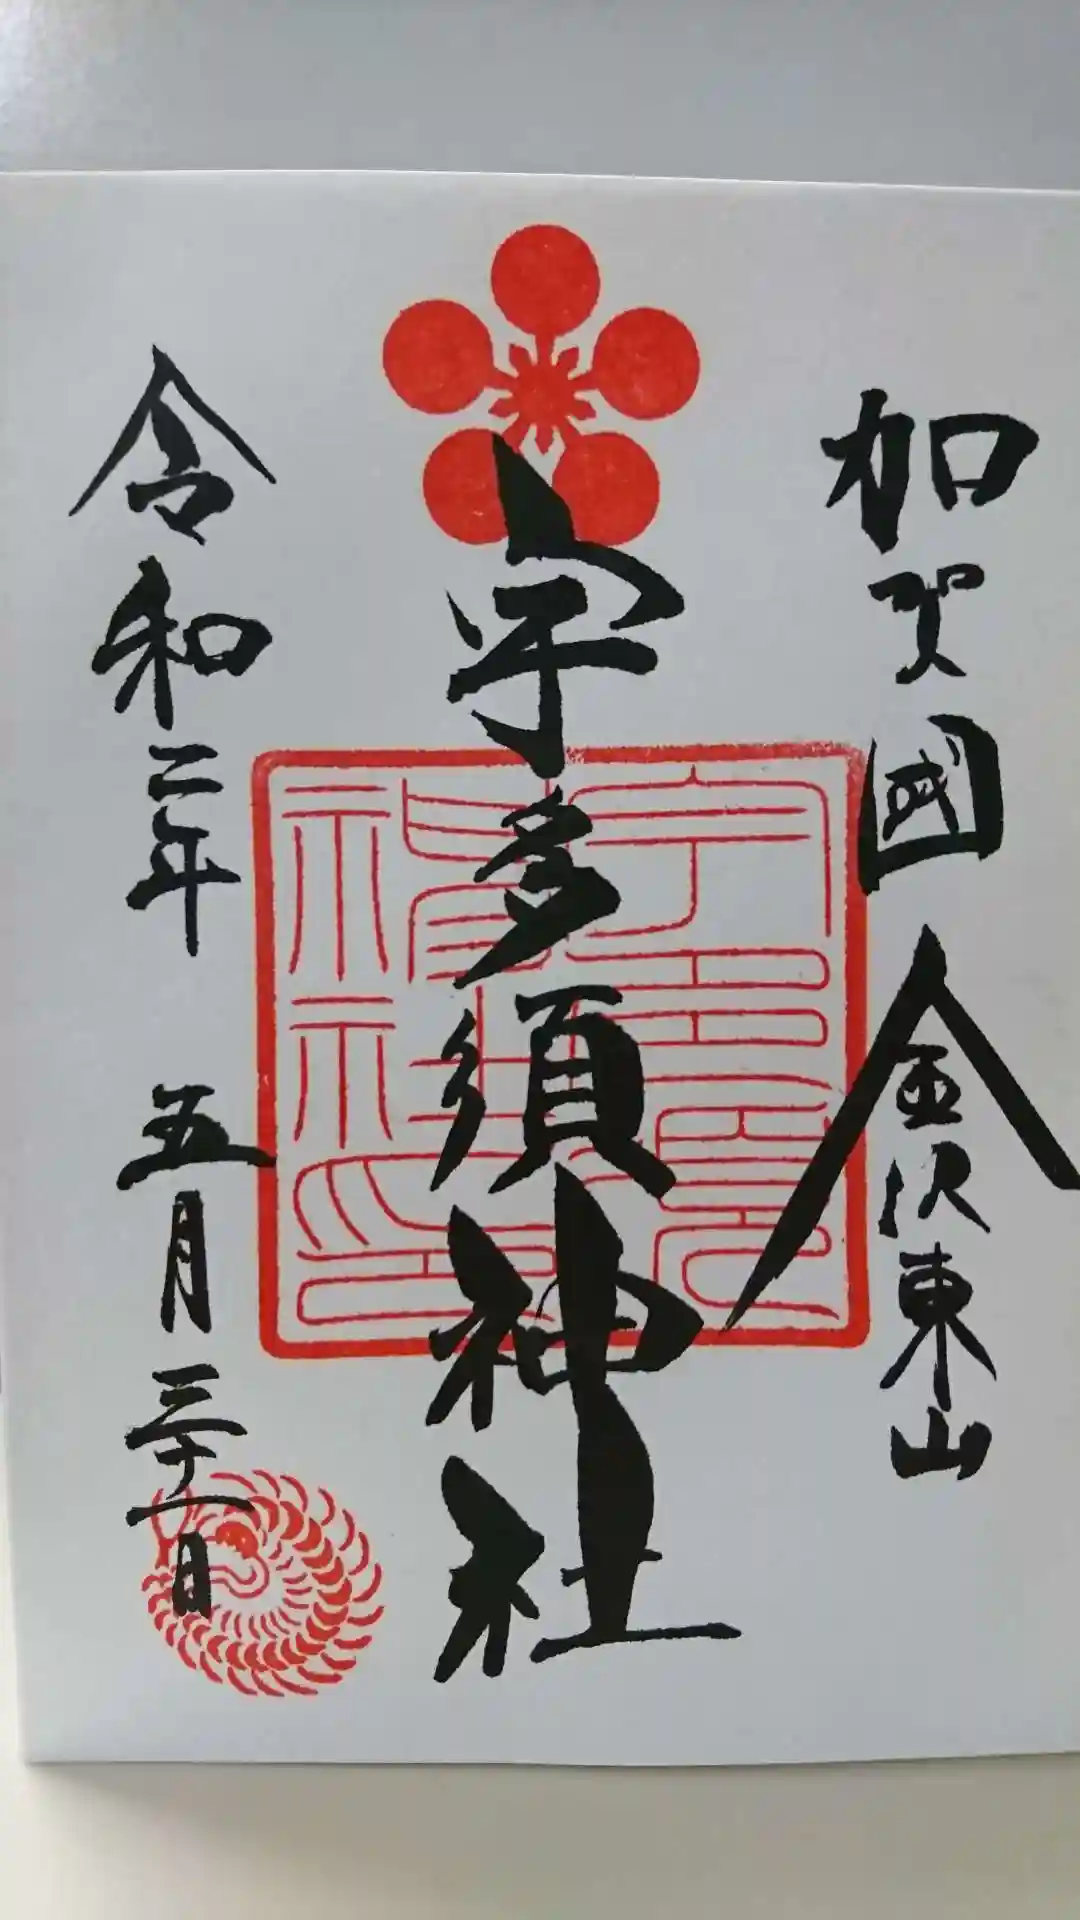 加賀國 金沢東山
宇多須神社
令和二年 五月 三十一日
宇多須神社印